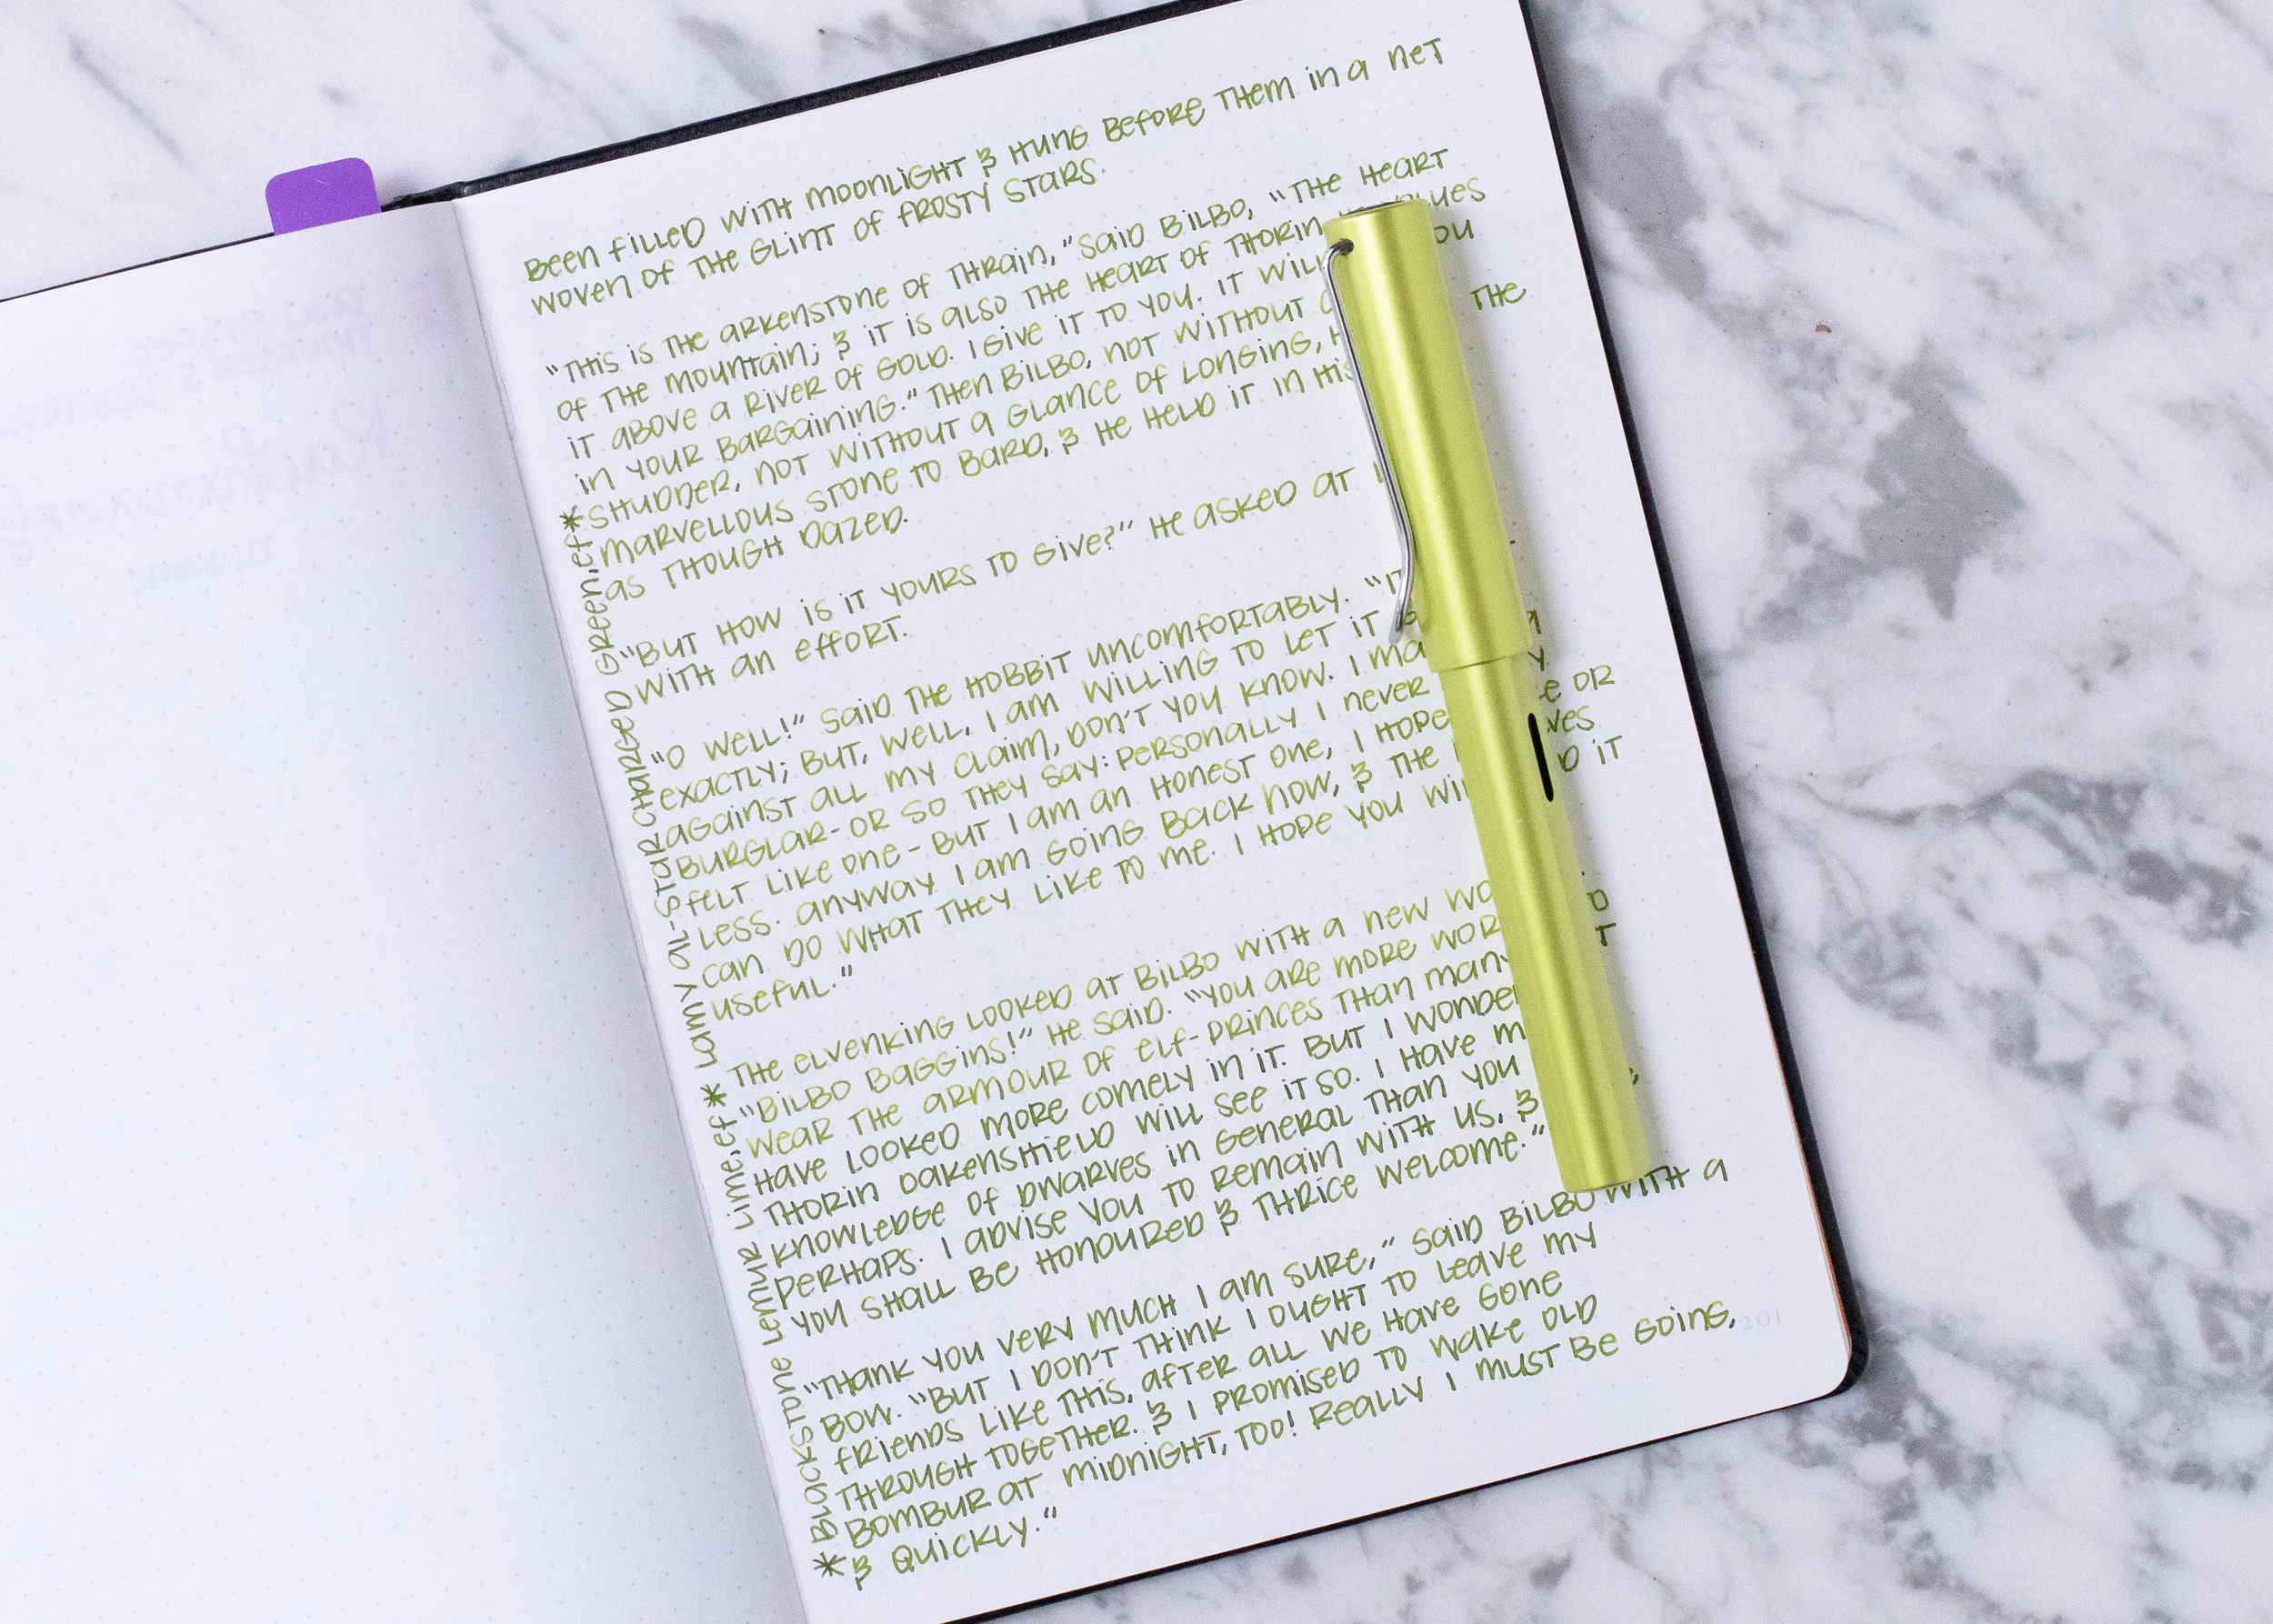 Been filled with moonlight & hung before them in a net
woven of the glint of frosty stars.
"This is the arkenstone of Thrain," said Bilbo, "the heart
of the mountain; & it is also the heart of Thorin.
it above a river of gold. I give it to you. It will
in your bargaining." Then Bilbo, not without
shudder, not without a glance of longing, the
marvellous stone to Bard, & he held it in his
as though dazed.
"But how is it yours to give?" he asked at
with an effort.
"O well!" said the hobbit uncomfortably. "It
exactly; but, well, I am willing to let it a
against all my claim, don't you know. I
burglar- or so they say: personally I never or
felt like one - but I am an honest one, I hope
less. Anyway I am going back now, & the it
can do what they like to me. I hope you
useful."
The Elvenking looked at Bilbo with a new
"Bilbo Baggins!" he said. "You are more
wear the armour of elf-princes than many
have looked more comely in it. But I wonder
Thorin Oakenshield will see it so. I have
knowledge of dwarves in general than you
perhaps. I advise you to remain with us, &
you shall be honoured & thrice welcome."
"Thank you very much I am sure," said Bilbo with a
bow. "But I don't think I ought to leave my
friends like this, after all we have gone
through together. & I promised to wake old
Bombur at midnight, too! Really I must be going,
& quickly."
* Blackstone Lemmur Lime, ef * Lamy Al-Star Charged Green, ef *
201